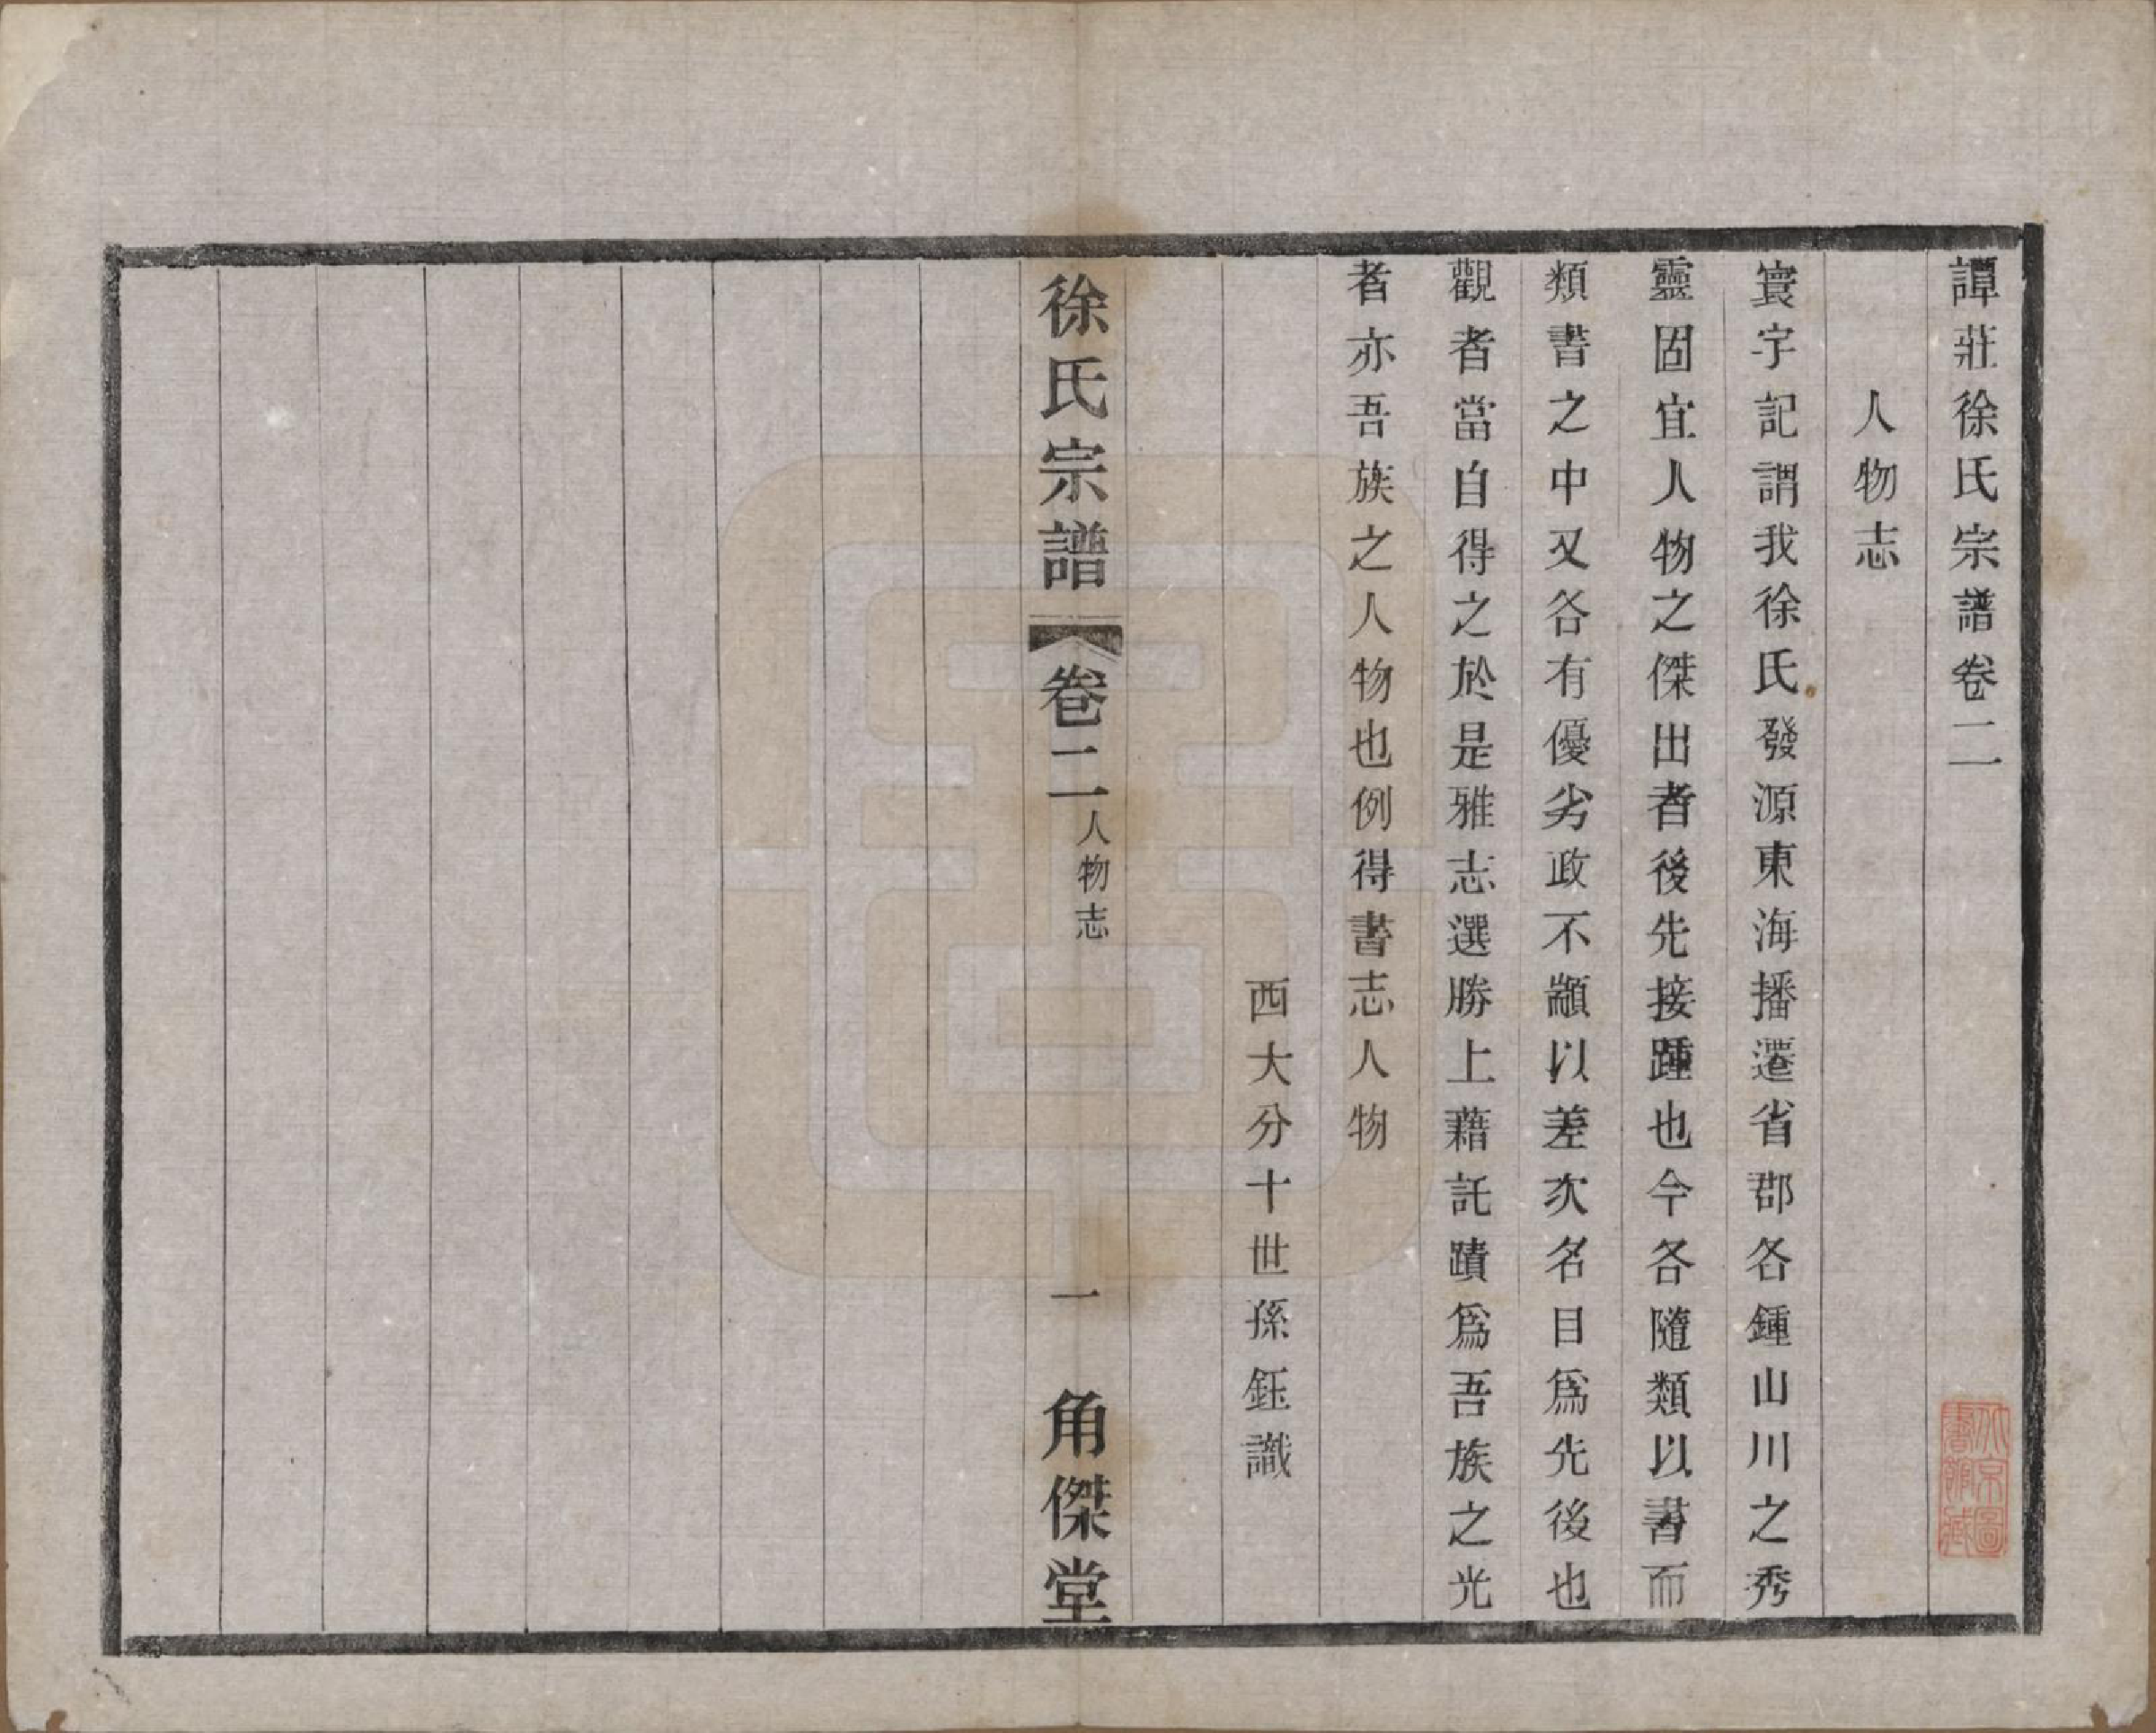 譚莊徐氏宗譜卷二
人物志
寰宇記謂我徐氏發源東海播遷省郡各鍾山川之秀
靈固宜人物之傑出者後先接踵也今各隨類以書而
類書之中又各有優劣政不顓以差次名目爲先後也
觀者當自得之於是雅志選勝上藉託蹟爲吾族之光
者亦吾族之人物也例得書志人物
西大分十世孫鈺識
徐氏宗譜
卷二
人物志
一
角傑堂
北京圖書館藏